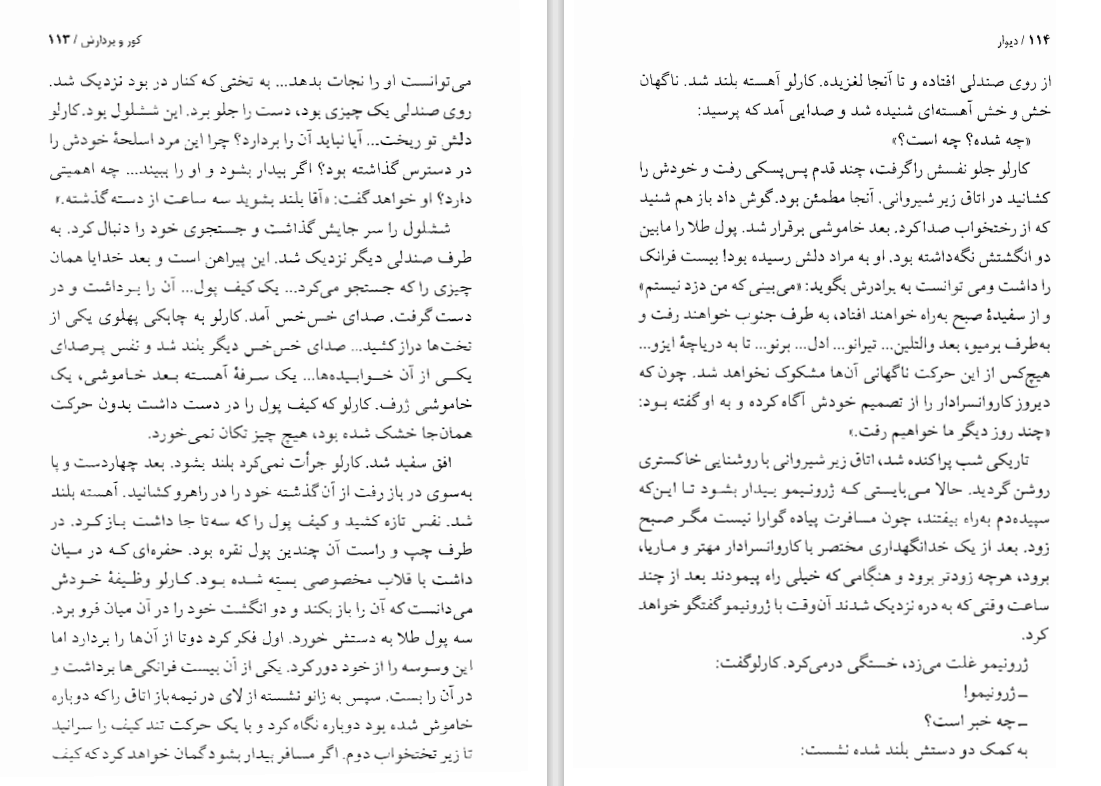 کور و بردارش / ۱۱۳
می‌توانست او را نجات بدهد... به تختی که کنار در بود نزدیک شد.
روی صندلی یک چیزی بود، دست را جلو برد. این ششلول بود. کارلو
دلش تو ریخت... آیا نباید آن را بردارد؟ چرا این مرد اسلحهٔ خودش را
در دسترس گذاشته بود؟ اگر بیدار بشود و او را ببیند... چه اهمیتی
دارد؟ او خواهد گفت: «آقا بلند بشوید سه ساعت از دسته گذشته.»
ششلول را سر جایش گذاشت و جستجوی خود را دنبال کرد. به
طرف صندلی دیگر نزدیک شد. این پیراهن است و بعد خدایا همان
چیزی را که جستجو می‌کرد... یک کیف پول... آن را بـرداشت و در
دست گرفت. صدای خس‌خس آمد. کارلو به چابکی پهلوی یکی از
تخت‌ها دراز کشید... صدای خس‌خس دیگر بلند شد و نفس پـرصدای
یکـی از آن خـوابیـده‌هـا... یک سـرفهٔ آهسته بـعد خـاموشی، یک
خاموشی ژرف. کارلو که کیف پول را در دست داشت بدون حرکت
همان‌جا خشک شده بود، هیچ چیز تکان نمی‌خورد.
افق سفید شد. کارلو جرأت نمی‌کرد بلند بشود. بعد چهاردست و پا
به‌سوی در باز رفت از آن گذشته خود را در راهرو کشانید. آهسته بلند
شد. نفس تازه کشید و کیف پول را که سه‌تا جا داشت باز کرد. در
طرف چپ و راست آن چندین پول نقره بود. حفره‌ای کـه در میـان
داشت با قلاب مخصوصی بسته شـده بـود. کـارلو وظـیفهٔ خـودش
می‌دانست که آن را باز بکند و دو انگشت خود را در آن میان فرو برد.
سه پول طلا به دستش خورد. اول فکر کرد دوتا از آن‌ها را بردارد اما
این وسوسه را از خود دور کرد. یکی از آن بیست فرانکی‌ها برداشت و
در آن را بست. سپس به زانو نشسته از لای در نیمه‌باز اتاق را که دوباره
خاموش شده بود دوباره نگاه کرد و با یک حرکت تند کیف را سرانید
تا زیر تختخواب دوم. اگر مسافر بیدار بشود گمان خواهد کرد که کیف
۱۱۴ / دیوار
از روی صندلی افتاده و تا آنجا لغزیده. کارلو آهسته بلند شد. ناگهان
خش و خش آهسته‌ای شنیده شد و صدایی آمد که پرسید:
«چه شده؟ چه است؟»
کارلو جلو نفسش را گرفت، چند قدم پس‌پسکی رفت و خودش را
کشانید در اتاق زیر شیروانی. آنجا مطمئن بود. گوش داد باز هم شنید
که از رختخواب صدا کرد. بعد خاموشی برقرار شد. پول طلا را مابین
دو انگشتش نگه‌داشته بود. او به مراد دلش رسیده بود! بیست فرانک
را داشت ومی توانست به برادرش بگوید: «می‌بینی که من دزد نیستم»
و از سفیدهٔ صبح به‌راه خواهند افتاد، به طرف جنوب خواهند رفت و
به‌طرف برمیو، بعد والتلین... تیرانو... ادل... برنو... تا به دریاچهٔ ایزو...
هیچ‌کس از این حرکت ناگهانی آن‌ها مشکوک نخواهد شد. چون که
دیروز کاروانسرادار را از تصمیم خودش آگاه کرده و به او گفته بـود:
«چند روز دیگر ما خواهیم رفت.»
تاریکی شب پراکنده شد، اتاق زیر شیروانی با روشنایی خاکستری
روشن گردید. حالا می‌بایستی کـه ژرونیمو بیدار بشود تـا این‌که
سپیده‌دم به‌راه بیفتند، چون مسافرت پیاده گوارا نیست مگـر صبح
زود. بعد از یک خدانگهداری مختصر با کاروانسرادار مهتر و مـاریا،
برود، هرچه زودتر برود و هنگامی که خیلی راه پیمودند بعد از چند
ساعت وقتی که به دره نزدیک شدند آن‌وقت با ژرونیمو گفتگو خواهد
کرد.
ژرونیمو غلت می‌زد، خستگی درمی‌کرد. کارلو گفت:
ـ ژرونیمو!
ـ چه خبر است؟
به کمک دو دستش بلند شده نشست: